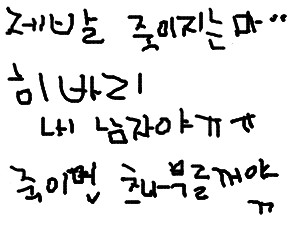 제발 죽이지는마..
히바리
내 남자야ㅠㅠ
죽이면 화부를꺼야
ㅠ